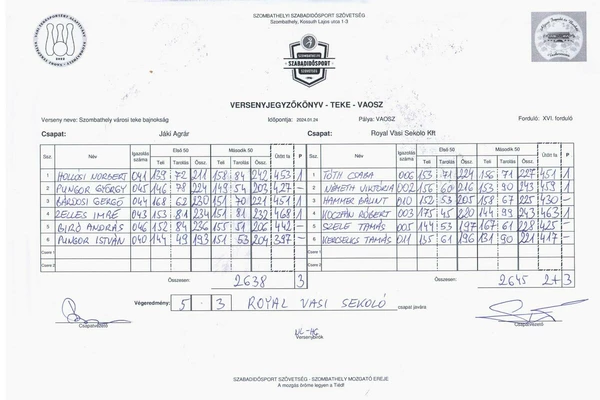 SZOMBATHELYI SZABADIDŐSPORT SZÖVETSÉG
Szombathely, Kossuth Lajos utca 1-3
SZOMBATHELYI
SZABADIDŐSPORT
SZÖVETSÉG
VERSENYJEGYZŐKÖNYV - TEKE - VAOSZ
Verseny neve: Szombathely városi teke bajnokság Időpontja: 2024.01.24 Pálya: VAOSZ Forduló: XVI. forduló
Csapat: Jáki Agrár Csapat: Royal Vasi Sekolo Kft
Ssz. Név Igazolás száma Első 50 Második 50 Ütött fa P Ssz. Név Igazolás száma Első 50 Második 50 Ütött fa P
Teli Tarolás Össz. Teli Tarolás Össz. Teli Tarolás Össz. Teli Tarolás Össz.
1 HOLLÓSI NORBERT 041 139 72 211 158 84 242 453 1 1 TÓTH CSABA 006 153 71 224 156 71 227 451 -
2 PUNGOR GYÖRGY 045 146 78 224 149 54 203 427 - 2 NÉMETH VIKTÓRIA 002 156 60 216 153 90 243 459 1
3 BÁRDOSI GERGŐ 044 168 62 230 151 70 221 451 1 3 HAMMER BÁLINT 010 152 53 205 158 67 225 430 -
4 ZELLES IMRE 040 153 81 234 151 81 232 468 1 4 KOCZÁN RÓBERT 003 175 45 220 144 99 243 463 1
5 BIRÓ ANDRÁS 046 152 84 236 155 51 206 442 - 5 SZELE TAMÁS 005 144 53 197 167 61 228 425 -
6 PUNGOR ISTVÁN 040 144 49 193 151 53 204 397 - 6 KERCSEKS TAMÁS 011 135 61 196 131 90 221 417 -
Csere 1 Csere 1
Csere 2 Csere 2
Összesen: 2638 3 Összesen: 2645 2+ 3
Végeredmény: 5 - 3 ROYAL VASI SEKOLÓ csapat javára
Csapatvezető Csapatvezető
Versenybírók
SZABADIDŐSPORT SZÖVETSÉG - SZOMBATHELY MOZGATÓ EREJE
A mozgás öröme legyen a Tiéd!